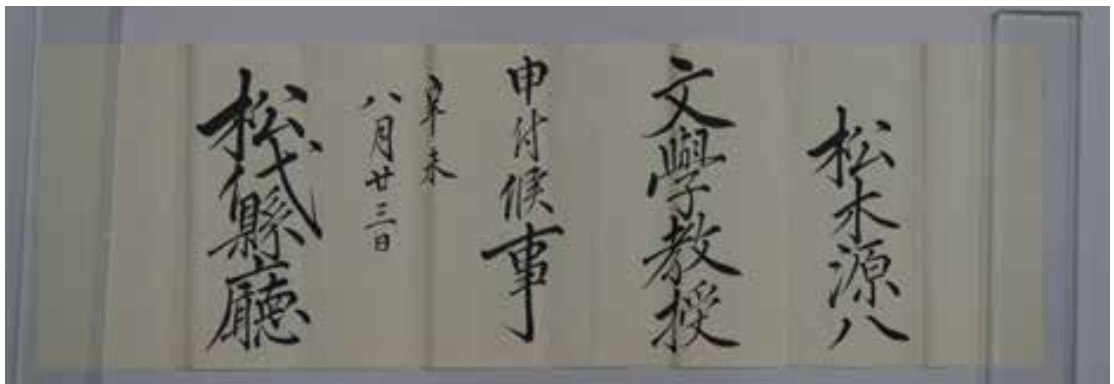 松木源八
文學教授
申付候事
辛未
八月廿三日
松代縣廳